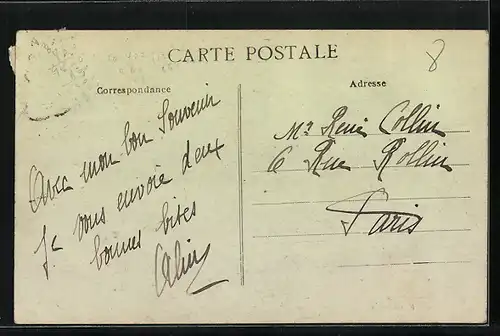 CARTE POSTALE
8
Correspondance
Adresse
Avec mon bon Souvenir
Je vous envoie deux
bonnes bises
Mr René Collin
6 Rue Rollin
Paris